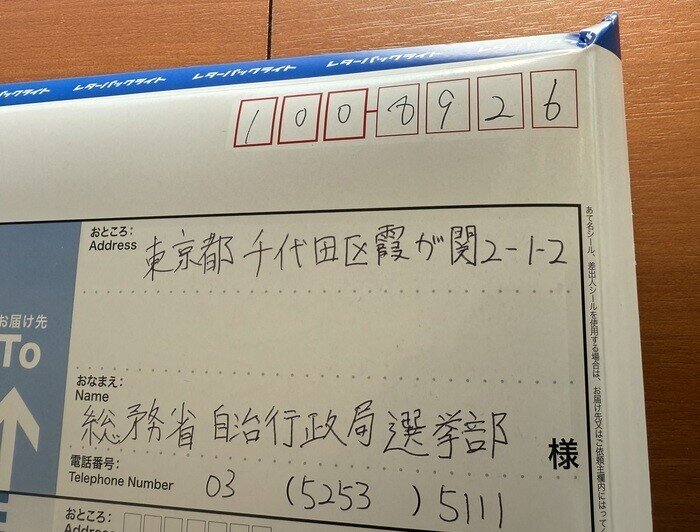 レターパックライト レターパックライト レターパックライト レターパックライト
100-8926
おところ:
Address
東京都千代田区霞が関2-1-2
お届け先
To
おなまえ:
Name
総務省自治行政局選挙部
様
電話番号:
Telephone Number
03 (5253) 5111
おところ:
Address
あて名シール、差出人シールを使用する場合は、お届け先又はご依頼主欄内にはって